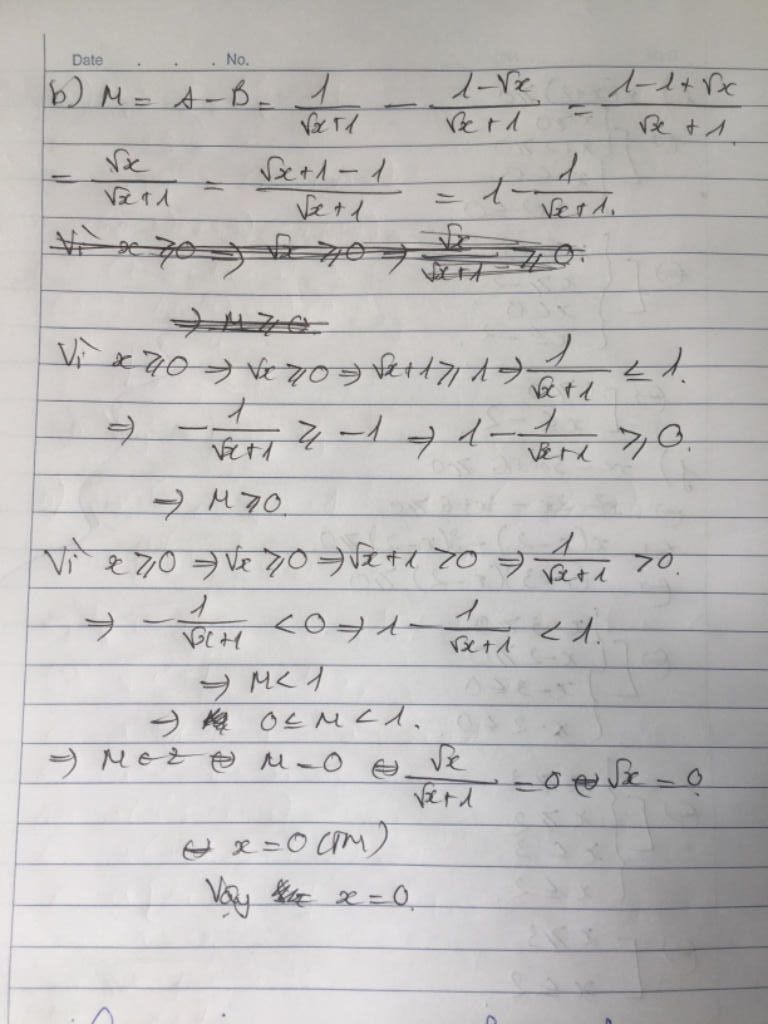 Date . . . No.
b) M = A - B = 1/(√x+1) - (1-√x)/(√x+1) = (1-1+√x)/(√x+1).
= √x/(√x+1) = (√x+1-1)/(√x+1) = 1 - 1/(√x+1).
Vì x ⩾ 0 ⇒ √x ⩾ 0 ⇒ √x/(√x+1) ⩾ 0.
⇒ M ⩾ 0
Vì x ⩾ 0 ⇒ √x ⩾ 0 ⇒ √x+1 ⩾ 1 ⇒ 1/(√x+1) ≤ 1.
⇒ -1/(√x+1) ⩾ -1 ⇒ 1 - 1/(√x+1) ⩾ 0.
⇒ M ⩾ 0.
Vì x ⩾ 0 ⇒ √x ⩾ 0 ⇒ √x+1 > 0 ⇒ 1/(√x+1) > 0.
⇒ -1/(√x+1) < 0 ⇒ 1 - 1/(√x+1) < 1.
⇒ M < 1
⇒ 0 ≤ M < 1.
⇒ M ∈ Z ⇔ M = 0 ⇔ √x/(√x+1) = 0 ⇔ √x = 0
⇔ x = 0 (TM)
Vậy x = 0.